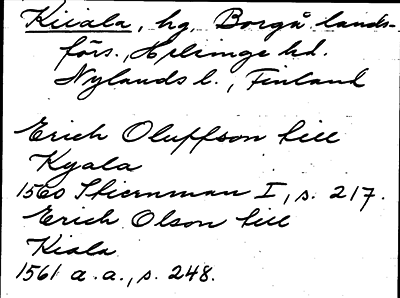 Kiiala, hg, Borgå lands-
förs., Helinge hd.
Nylands l., Finland
Erich Oluffson till
Kyala
1560 Stiernman I, s. 217.
Erich Olson till
Kiala
1561 a.a., s. 248.